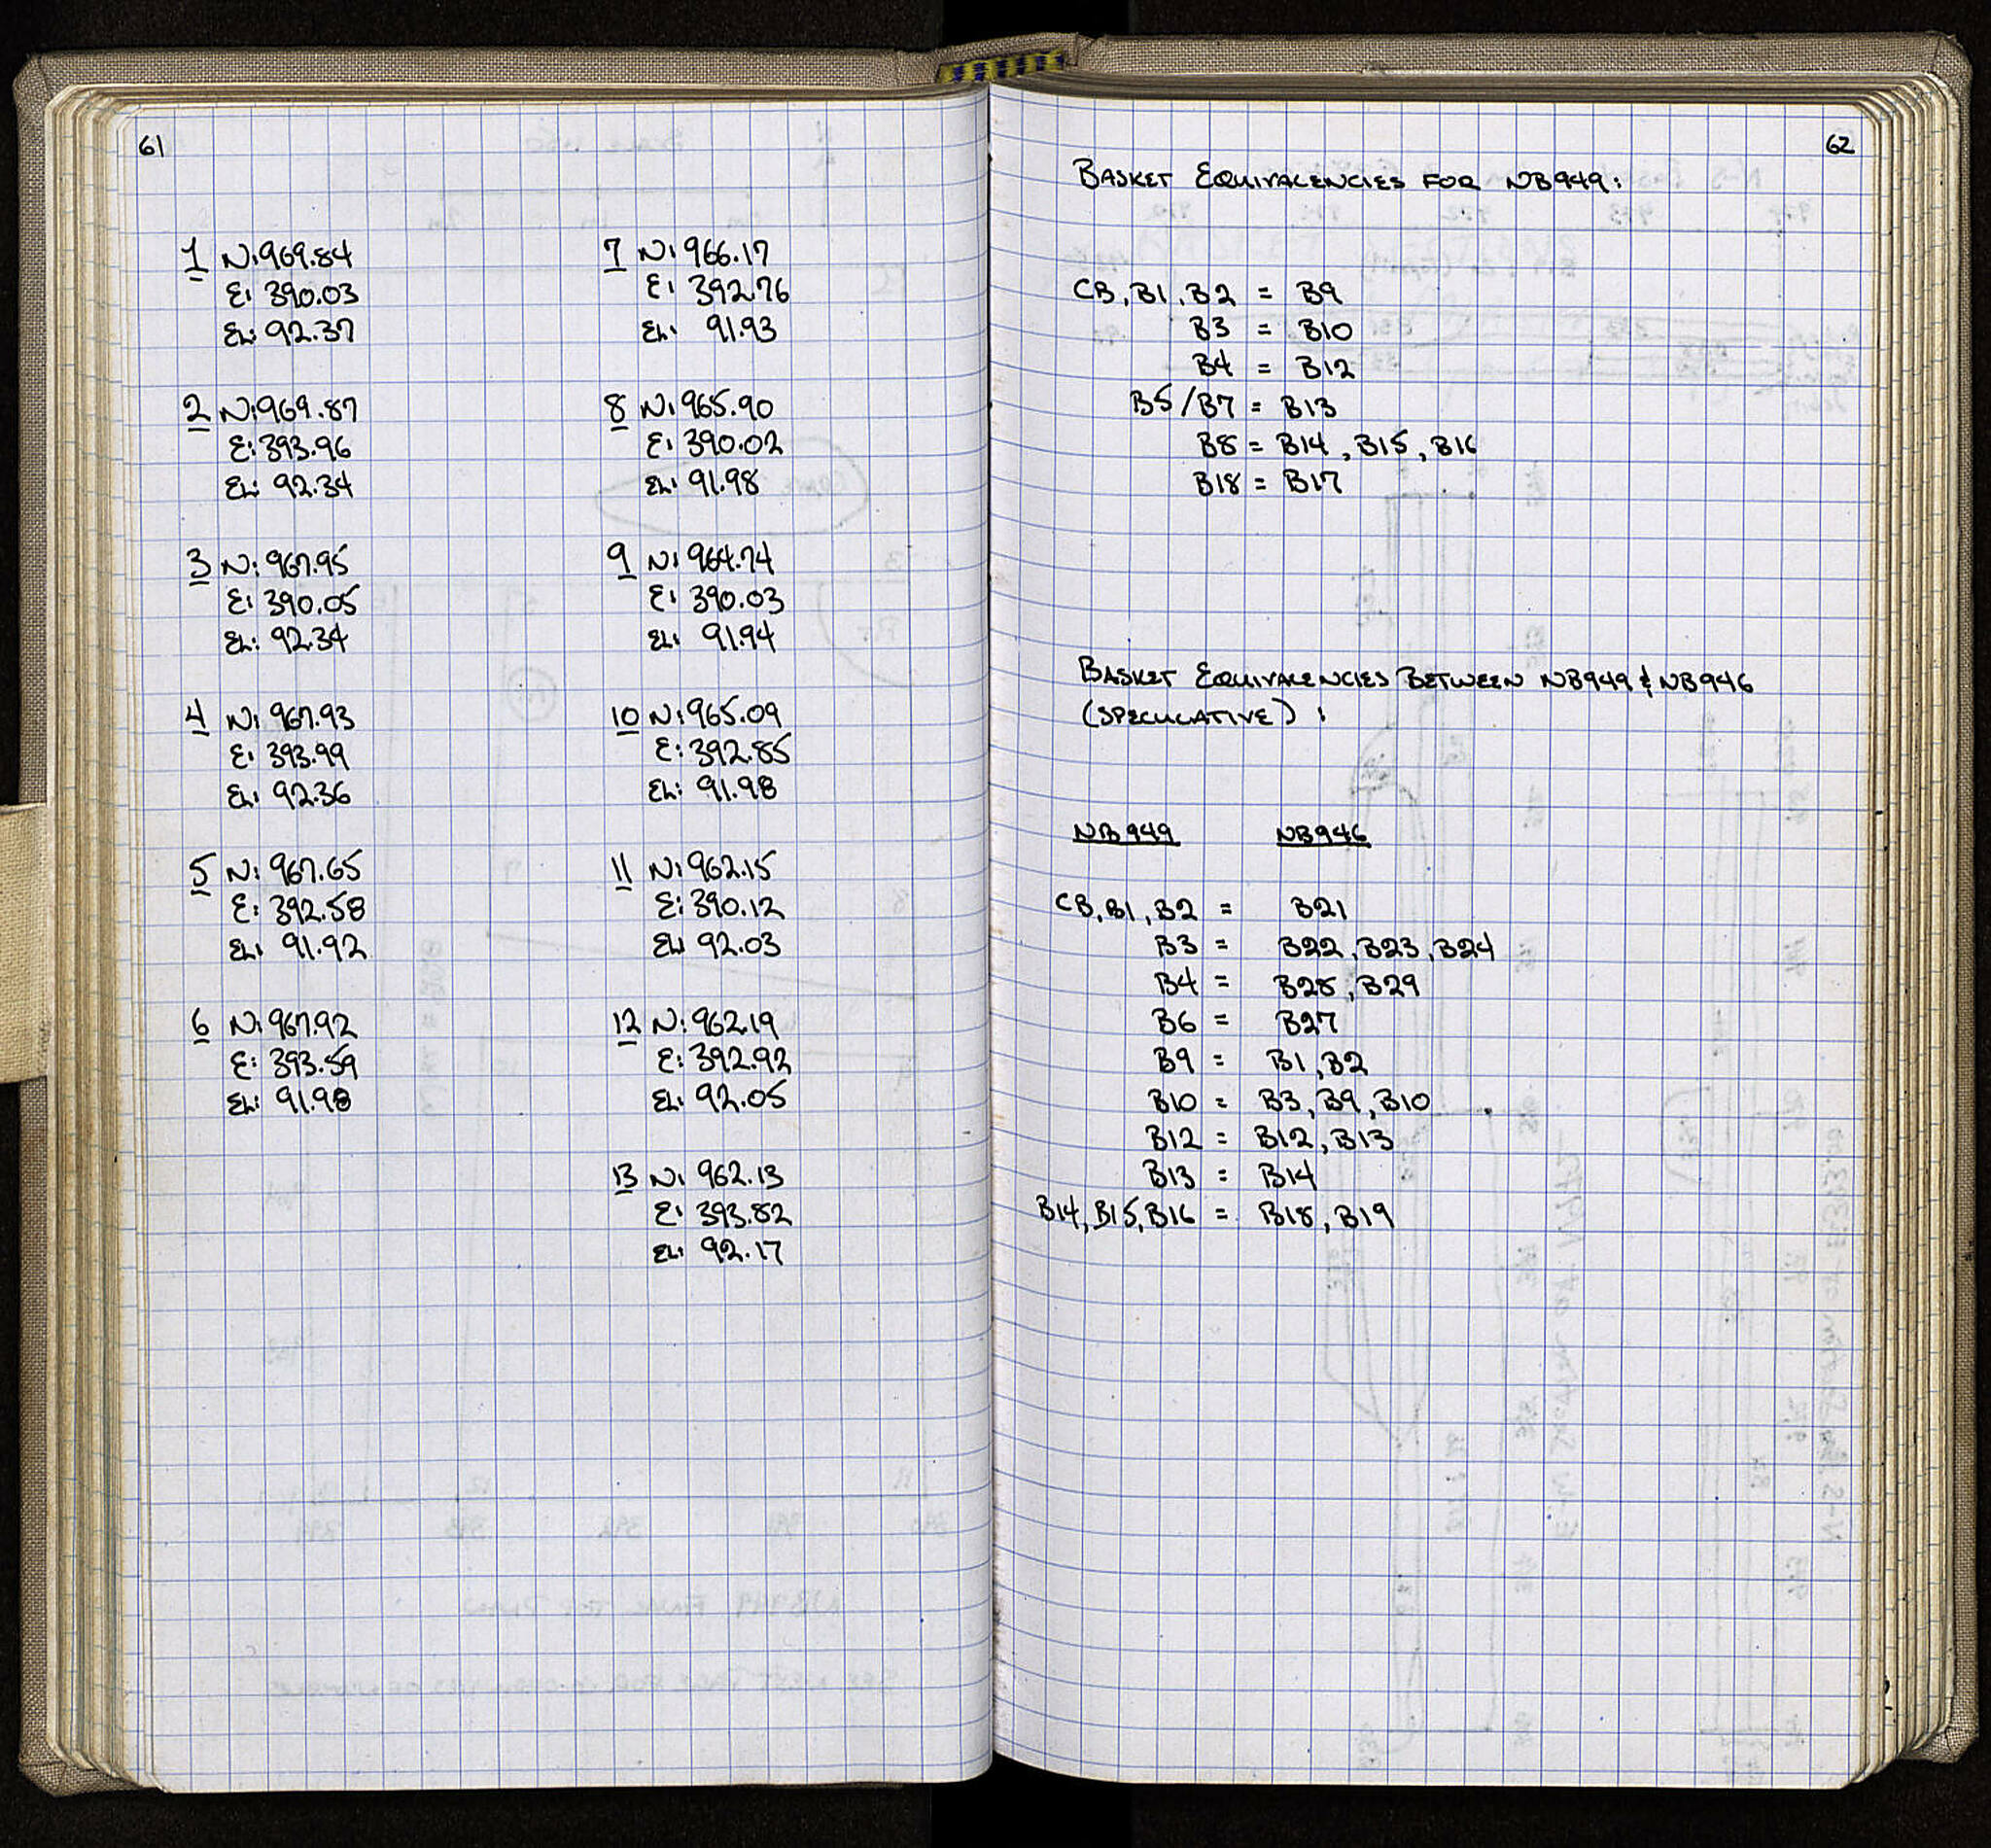 61
1 N: 969.84
E: 390.03
EL: 92.37
2 N: 969.87
E: 393.96
EL: 92.34
3 N: 967.95
E: 390.05
EL: 92.34
4 N: 967.93
E: 393.99
EL: 92.36
5 N: 967.65
E: 392.58
EL: 91.92
6 N: 967.92
E: 393.59
EL: 91.98
7 N: 966.17
E: 392.76
EL: 91.93
8 N: 965.90
E: 390.02
EL: 91.98
9 N: 964.74
E: 390.03
EL: 91.94
10 N: 965.09
E: 392.85
EL: 91.98
11 N: 962.15
E: 390.12
EL: 92.03
12 N: 962.19
E: 392.92
EL: 92.05
13 N: 962.13
E: 393.82
EL: 92.17
62
BASKET EQUIVALENCIES FOR NB949:
CB, B1, B2 = B9
B3 = B10
B4 = B12
B5/B7 = B13
B8 = B14, B15, B16
B18 = B17
BASKET EQUIVALENCIES BETWEEN NB949 & NB946
(SPECULATIVE):
NB949 NB946
CB, B1, B2 = B21
B3 = B22, B23, B24
B4 = B28, B29
B6 = B27
B9 = B1, B2
B10 = B3, B9, B10
B12 = B12, B13
B13 = B14
B14, B15, B16 = B18, B19